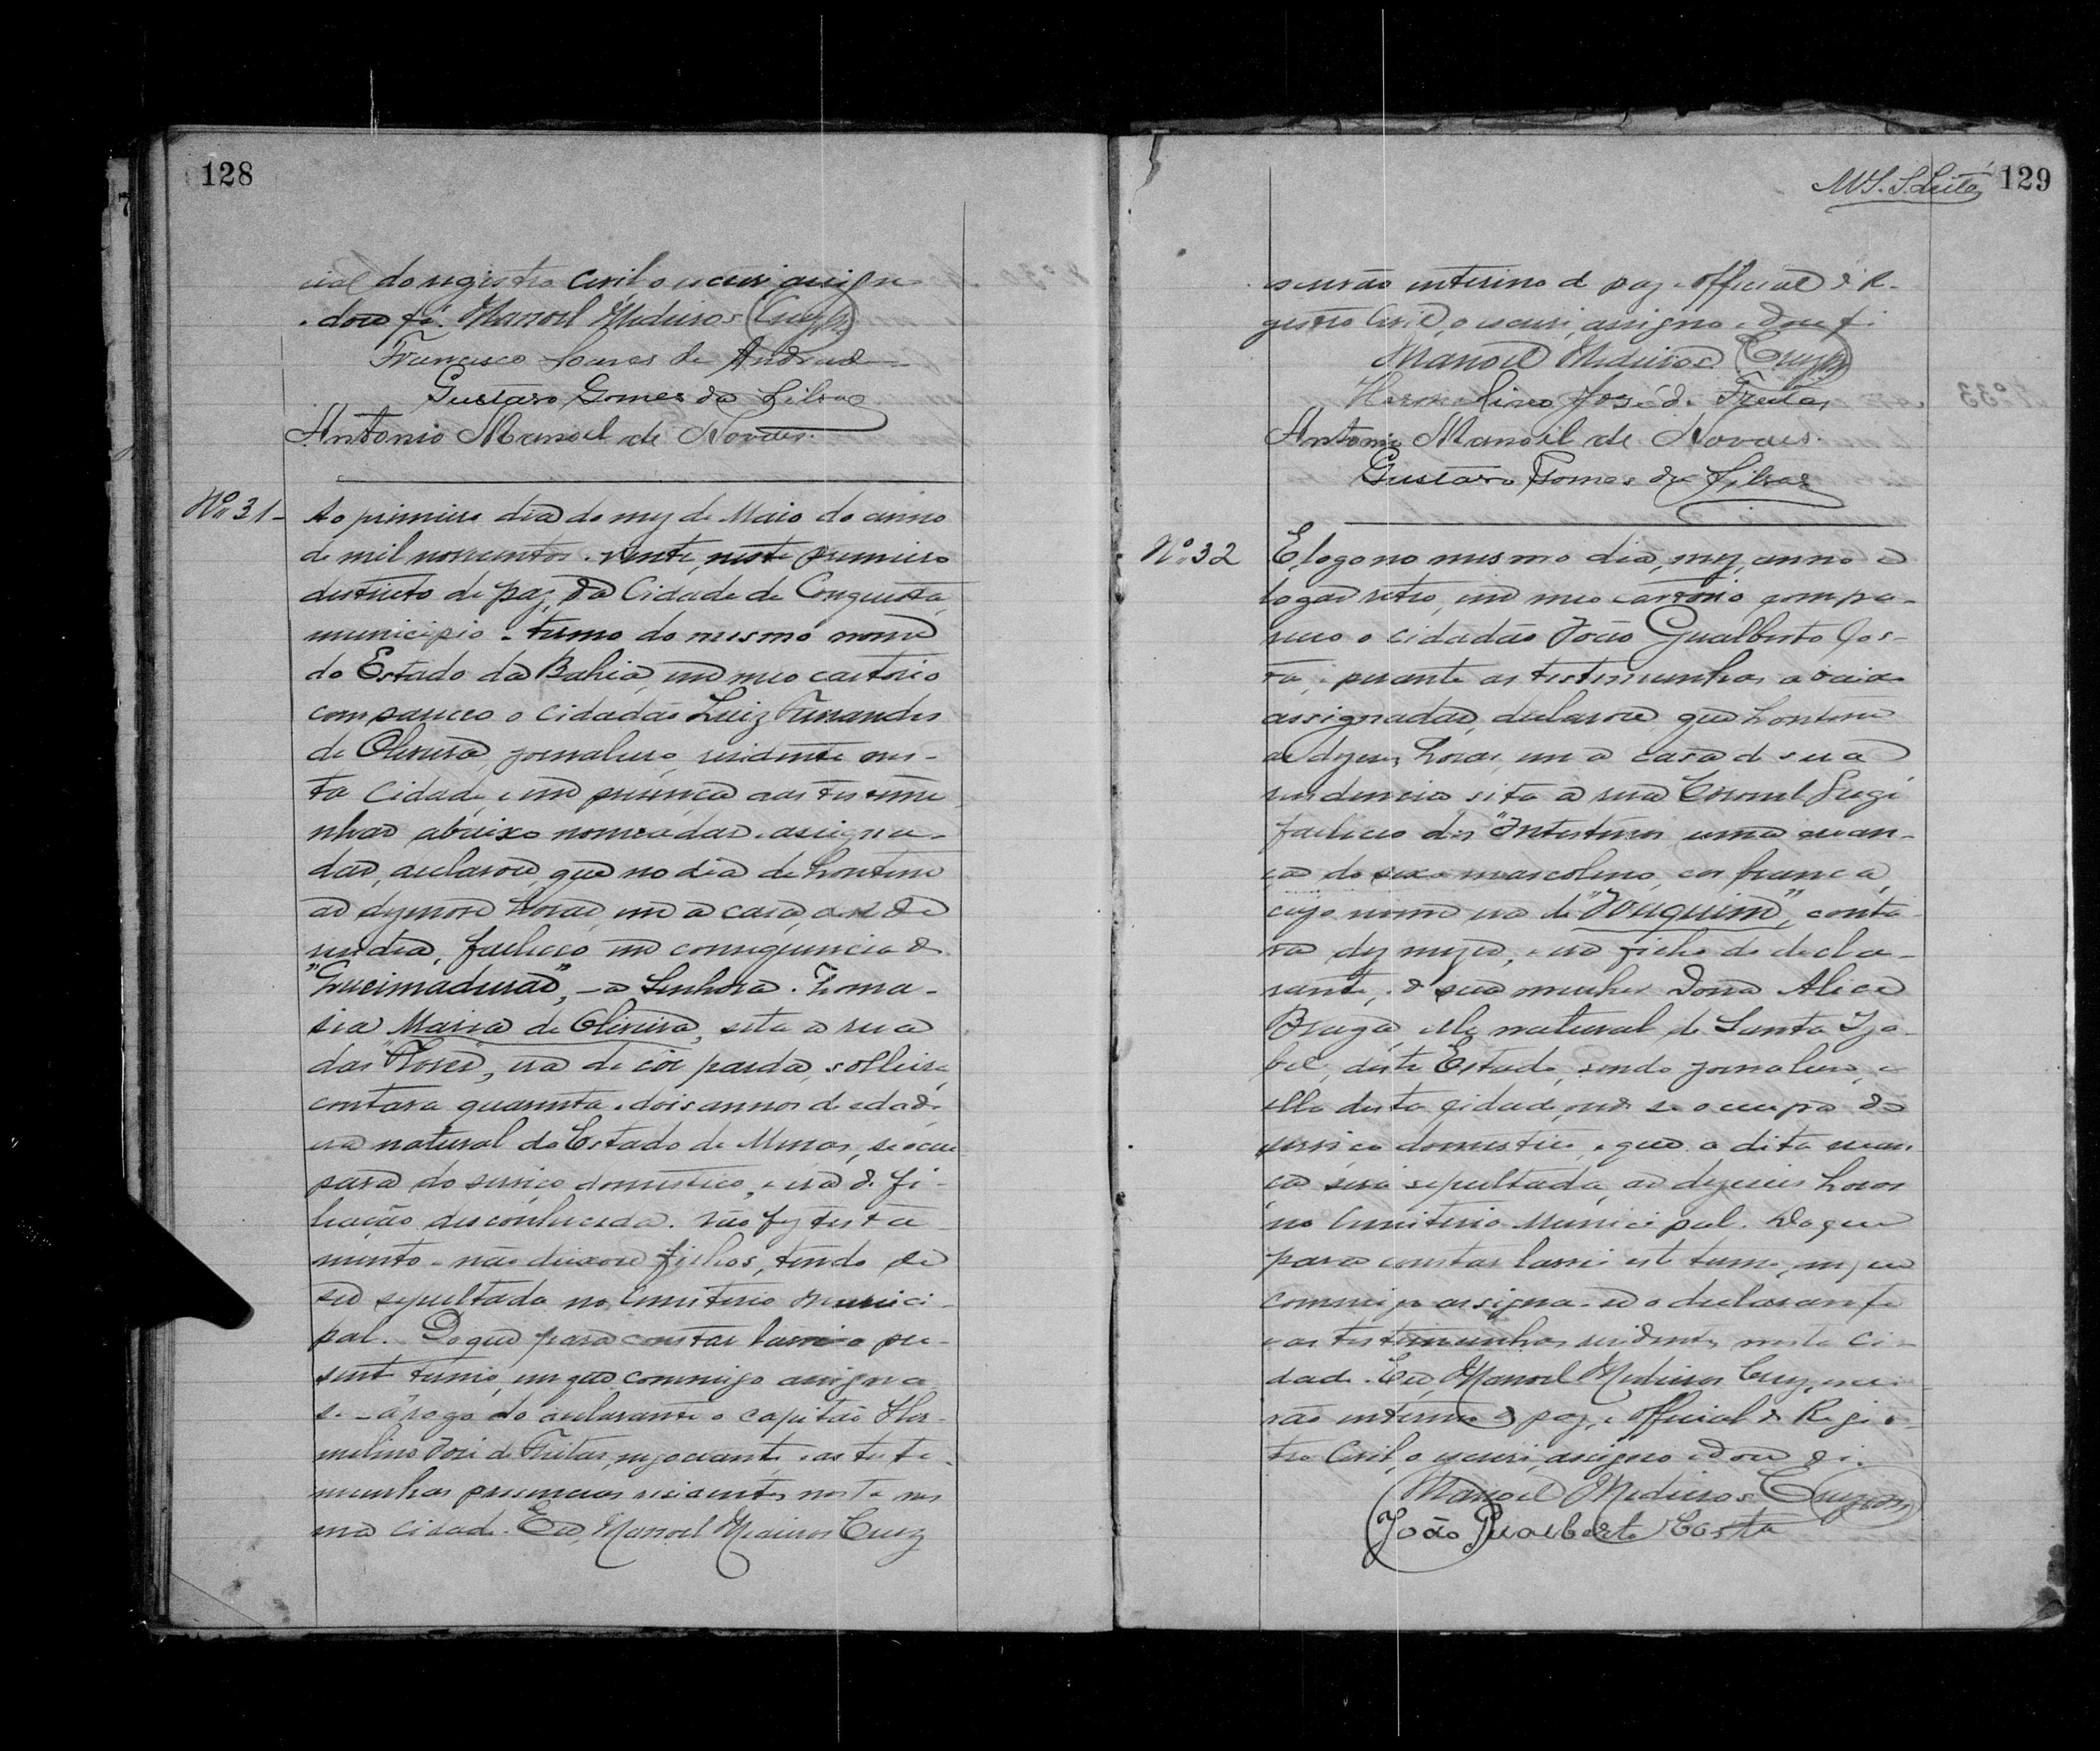 128
cial do registro civil o escrevi, assigno
e dou fé. Manoel Medeiros Cruz
Francisco Soares de Andrade
Gustavo Gomes da Silva
Antonio Manoel de Novaes.
Nº 31 - Ao primeiro dia do mez de Maio do anno
de mil novecentos e vinte, neste primeiro
destricto de paz, da Cidade de Conquista,
municipio e termo do mesmo nome
do Estado da Bahia, em meo cartorio
compareceo o cidadão Luiz Fernandes
de Oliveira, jornaleiro, residente nes-
ta Cidade, e em presença das testemu
nhas abaixo nomeadas e assigna-
das, declarou, que no dia de hontem
as dezenove horas, em a casa de
rendia, falleceo em consequencia de
"Queimaduras", a Senhora Thoma-
sia Maria de Oliveira, sita a rua
das "Flores", era de cor parda, solteira,
contava quarenta e dois annos de edade,
era natural do Estado de Minas, se occu
pava do serviço domestico, e era de fi-
liação desconhecida. Não fez testa
mento e não deixou filhos, tendo de
ser sepultada no Cemiterio Munici-
pal. Do que para constar lavrei o pre-
sente termo, em que commigo assigna
se a rogo do declarante o capitão Her-
melino José de Freitas, negociante, e as teste-
munhas presenciaes residentes nesta mes
ma cidade. Eu, Manoel Medeiros Cruz
129
escrivão interino de paz e official do Re-
gistro Civil, o escrevi, assigno e dou fé
Manoel Medeiros Cruz
Hermelino José de Freitas
Antonio Manoel de Novaes.
Gustavo Gomes da Silva
Nº 32 E, logo no mesmo dia, mez, anno e
logar retro, em meo cartorio compa-
receo o cidadão João Gualberto Cos-
ta, e perante as testemunhas abaixo
assignadas, declarou que hontem
as dezeseis horas, em a casa de sua
residencia sita a rua Coronel Gugé
falleceo dos "Intestinos" uma crean-
ça do sexo masculino, cor branca,
cujo nome era de "Joaquim", conta
va dez mezes, e era filho do decla-
rante, e sua mulher Dona Alice
Braga, elle natural de Santa Iza-
bel, deste Estado, sendo jornaleiro, e
ella desta cidade, onde se occupa do
serviço domestico, e que a dita crean
ça será sepultada, as dezeseis horas
no Cemiterio Municipal. Do que
para constar lavrei este termo, em que
commigo assigna-se o declarante
e as testemunhas residentes nesta Ci-
dade. Eu, Manoel Medeiros Cruz, escri
vão interino de paz, e official do Regis
tro Civil, o escrevi, assigno e dou fé.
Manoel Medeiros Cruz
João Gualberto Costa